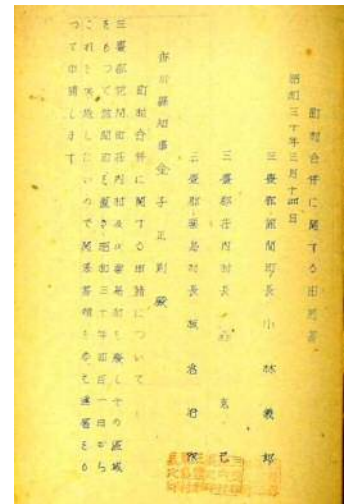 町村合併に関する申請書
昭和三十年三月十四日
三豊郡詫間町長 小林義郎
三豊郡荘内村長 森 克己
三豊郡粟島村長 坂倉
香川県知事金子正則殿
町村合併に関する申請について
三豊郡詫間町荘内村及び粟島村を廃しその区域
をもつて詫間町を置き昭和三十年四月一日から
これを実施したいので関係書類を添え連署をも
つて申請します